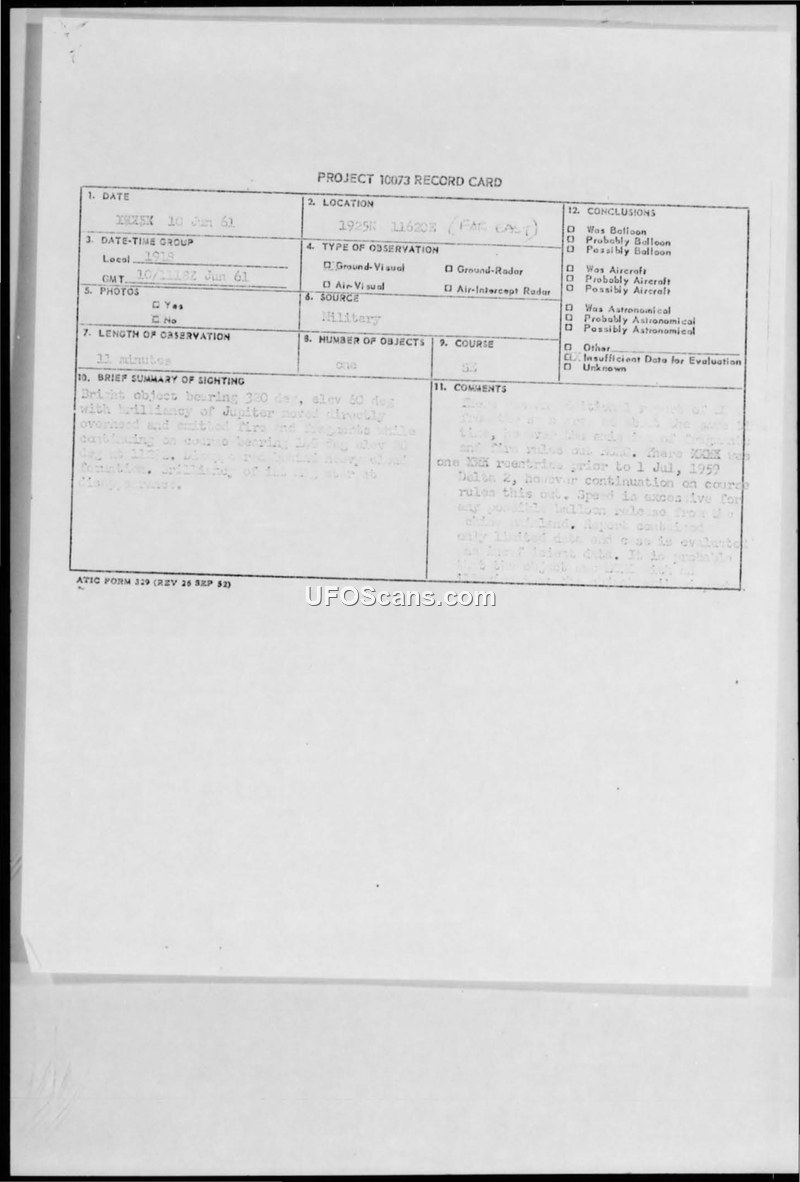 PROJECT 10073 RECORD CARD
1. DATE
10 Jun 61
2. LOCATION
1925N 11620E (FAR EAST)
12. CONCLUSIONS
Was Balloon
Probably Balloon
Possibly Balloon
Was Aircraft
Probably Aircraft
Possibly Aircraft
Was Astronomical
Probably Astronomical
Possibly Astronomical
Other
Insufficient Data for Evaluation
Unknown
3. DATE-TIME GROUP
Local 1918
GMT 10/1118Z Jun 61
4. TYPE OF OBSERVATION
Ground-Visual Ground-Radar
Air-Visual Air-Intercept Radar
5. PHOTOS
Yes
No
6. SOURCE
Military
7. LENGTH OF OBSERVATION
11 minutes
8. NUMBER OF OBJECTS
one
9. COURSE
SE
10. BRIEF SUMMARY OF SIGHTING
Bright object bearing 320 deg, elev 60 deg
with brilliancy of Jupiter moved directly
overhead and emitted fire and fragments while
continuing on course bearing deg elev
deg at heavy cloud
formation.
disappearance.
11. COMMENTS
There additional report of
from the same
time, however the emission of fragments
and fire rules out There XXXX was
one XXX reentries prior to 1 Jul, 1959
Delta 2, however continuation on course
rules this out. Speed is excessive for
any possible balloon release from the
mainland. Report contained
only limited data and case is evaluated
as insufficient data. It is probable
that the object was
ATIC FORM 329 (REV 26 SEP 52)
UFOScans.com